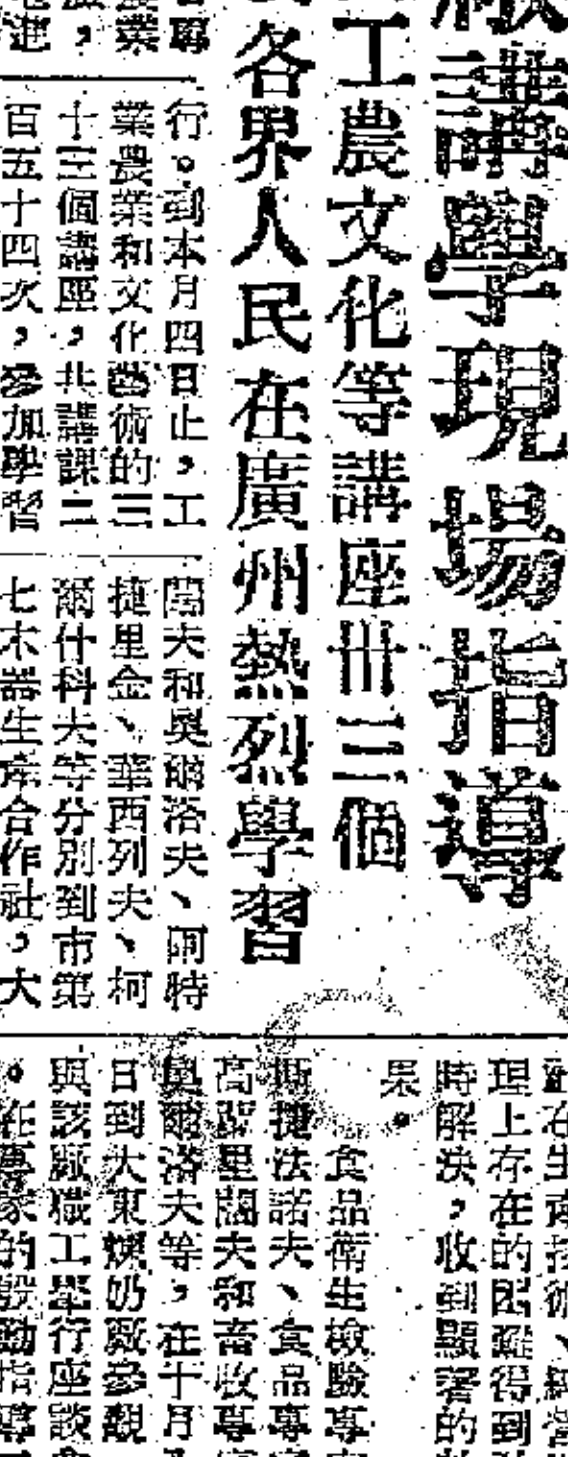 講學現場指導
工農文化等講座卅三個
各界人民在廣州熱烈學習
行。到本月四日止，工
業農業和文化藝術的三
十三個講座，共講課二
百五十四次，參加學習
闊夫和奧爾洛夫、阿特
捷里金、華西列夫、柯
爾什科夫等分別到市第
七木器生產合作社，大
理上存在的困難得到
時解決，收到顯著的
果。
食品衞生檢驗專
斯捷法諾夫、食品專
高里闊夫和畜牧專
奧爾洛夫等，在十月
日到大東煉奶廠參觀
與該廠職工舉行座談
。在專家的指導